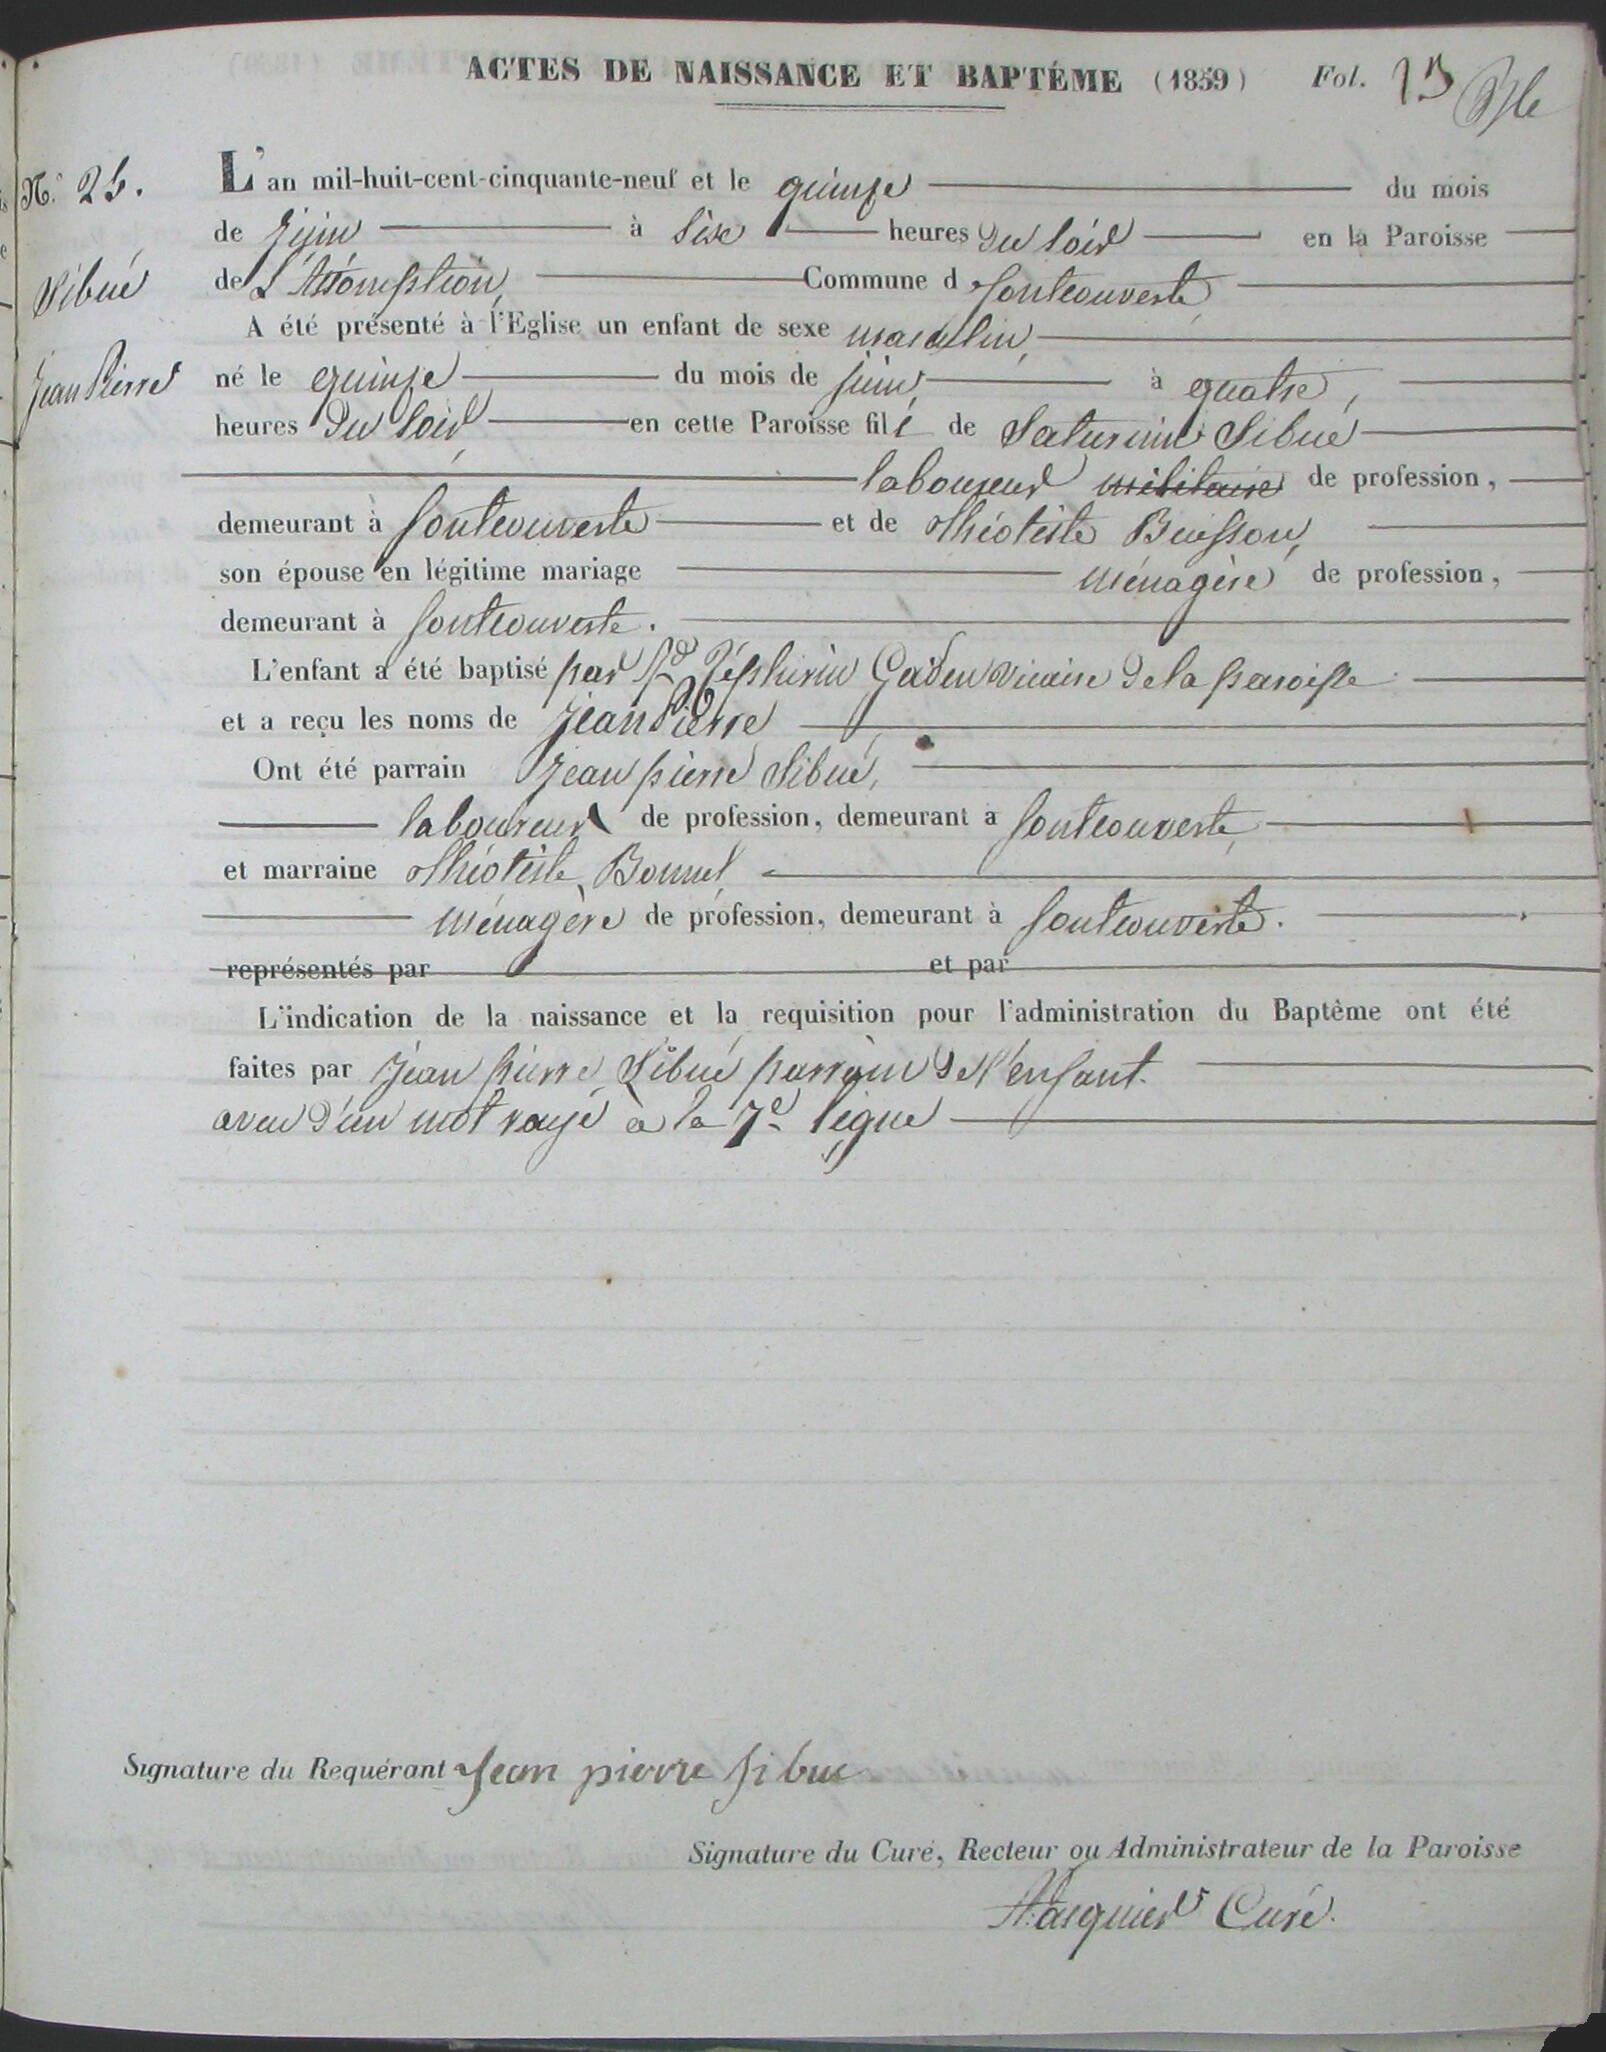 ACTES DE NAISSANCE ET BAPTÊME (1859) Fol. 13
N.° 25. L'an mil-huit-cent-cinquante-neuf et le quinze du mois
de Juin à Six heures du Soir en la Paroisse
Sibué de L'Assomption, Commune d fontcouverte,
A été présenté à l'Eglise un enfant de sexe masculin,
Jean Pierre né le quinze du mois de juin, à quatre,
heures Du Soir, en cette Paroisse fils de Saturnin Sibué
laboureur militaire de profession,
demeurant à fontcouverte et de théotiste Buisson,
son épouse en légitime mariage ménagère de profession,
demeurant à fontcouverte.
L'enfant a été baptisé par Rd Zéphirin Gaden vicaire de la paroisse
et a reçu les noms de Jean Pierre,
Ont été parrain Jean pierre Sibué,
laboureur de profession, demeurant à fontcouverte,
et marraine théotiste Bonnel,
ménagère de profession, demeurant à fontcouverte.
représentés par et par
L'indication de la naissance et la requisition pour l'administration du Baptême ont été
faites par Jean pierre Sibué parrain de l'enfant.
aveu d'un mot rayé à la 7e ligne
Signature du Requérant Jean pierre Sibue
Signature du Curé, Recteur ou Administrateur de la Paroisse
Curé.